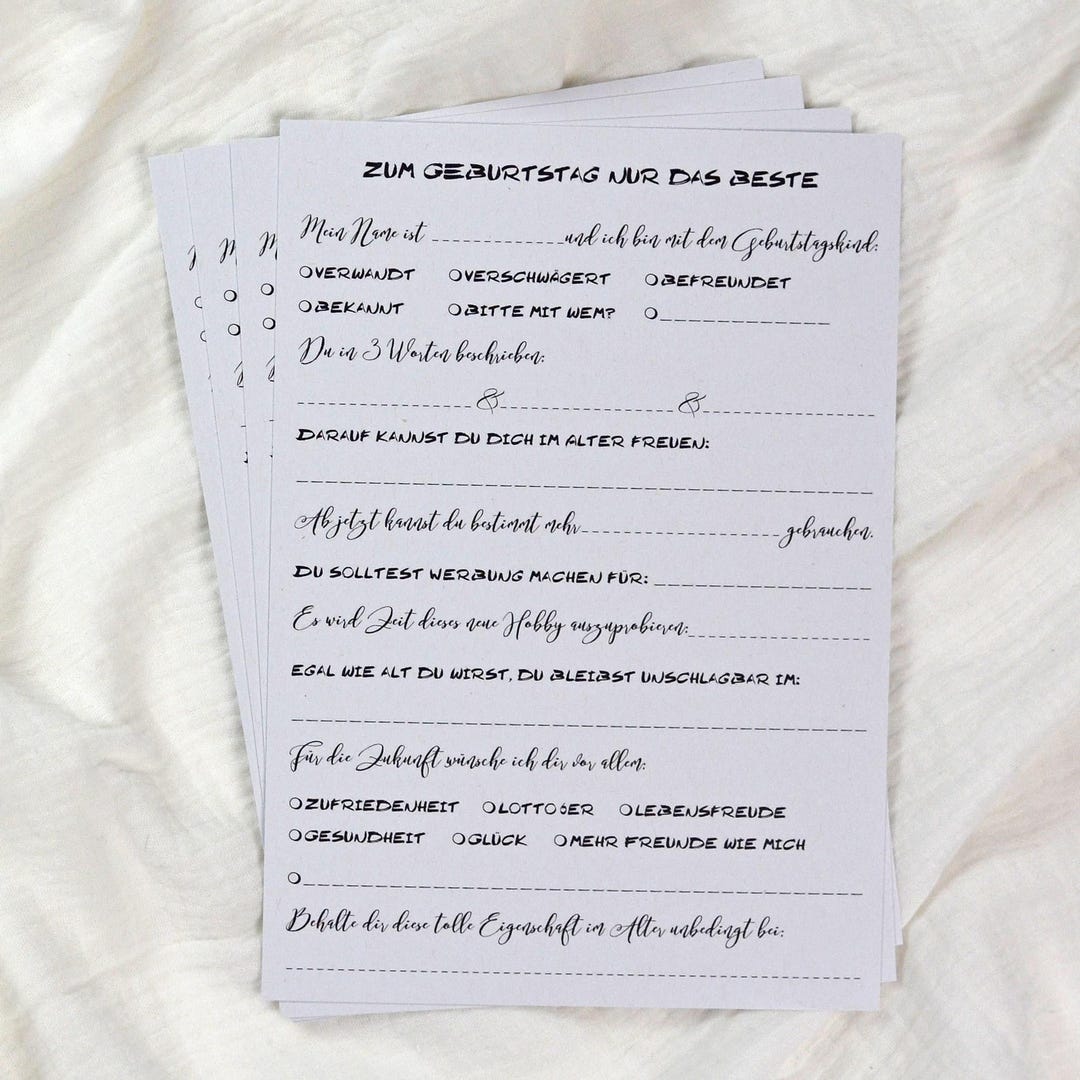 ZUM GEBURTSTAG NUR DAS BESTE
Mein Name ist _____________und ich bin mit dem Geburtstagskind:
○VERWANDT ○VERSCHWÄGERT ○BEFREUNDET
○BEKANNT ○BITTE MIT WEM? ○_______________
Du in 3 Worten beschrieben:
_________________&_________________&_________________
DARAUF KANNST DU DICH IM ALTER FREUEN:
Ab jetzt kannst du bestimmt mehr____________________gebrauchen.
DU SOLLTEST WERBUNG MACHEN FÜR: __________________
Es wird Zeit dieses neue Hobby auszuprobieren:__________________
EGAL WIE ALT DU WIRST, DU BLEIBST UNSCHLAGBAR IM:
Für die Zukunft wünsche ich dir vor allem:
○ZUFRIEDENHEIT ○LOTTO 6ER ○LEBENSFREUDE
○GESUNDHEIT ○GLÜCK ○MEHR FREUNDE WIE MICH
○______________________________________________
Behalte dir diese tolle Eigenschaft im Alter unbedingt bei: